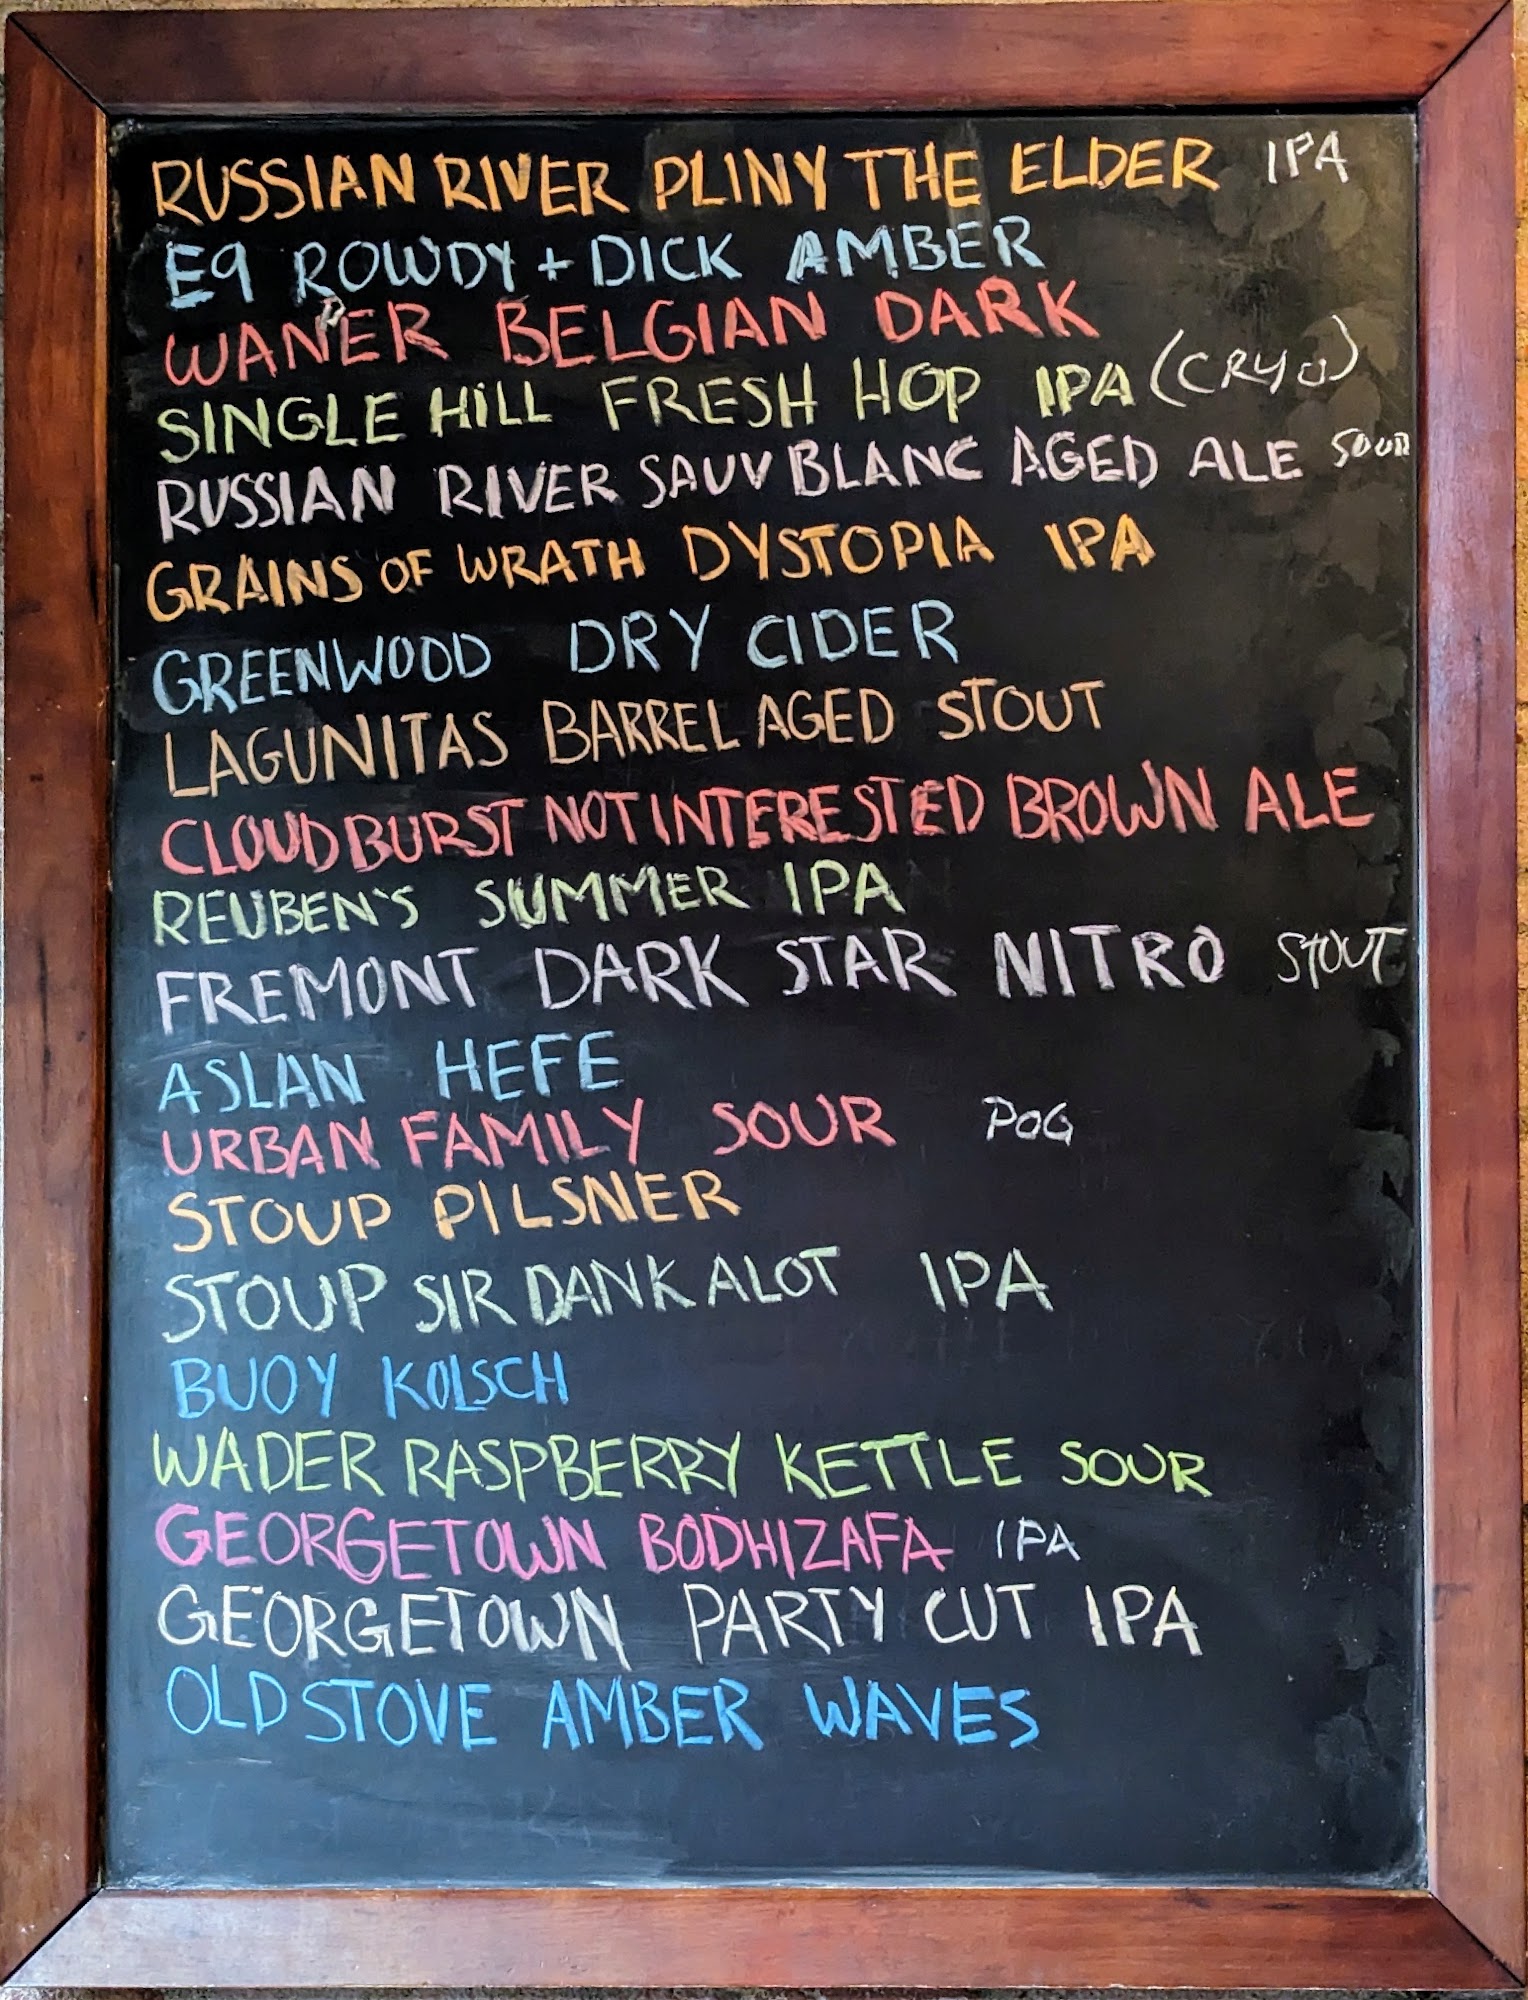 RUSSIAN RIVER PLINY THE ELDER IPA
E9 ROWDY + DICK AMBER
WANDER BELGIAN DARK
SINGLE HILL FRESH HOP IPA (CRYO)
RUSSIAN RIVER SAUV BLANC AGED ALE SOUR
GRAINS OF WRATH DYSTOPIA IPA
GREENWOOD DRY CIDER
LAGUNITAS BARREL AGED STOUT
CLOUDBURST NOT INTERESTED BROWN ALE
REUBEN'S SUMMER IPA
FREMONT DARK STAR NITRO STOUT
ASLAN HEFE
URBAN FAMILY SOUR POG
STOUP PILSNER
STOUP SIR DANKALOT IPA
BUOY KOLSCH
WADER RASPBERRY KETTLE SOUR
GEORGETOWN BODHIZAFA IPA
GEORGETOWN PARTY CUT IPA
OLD STOVE AMBER WAVES